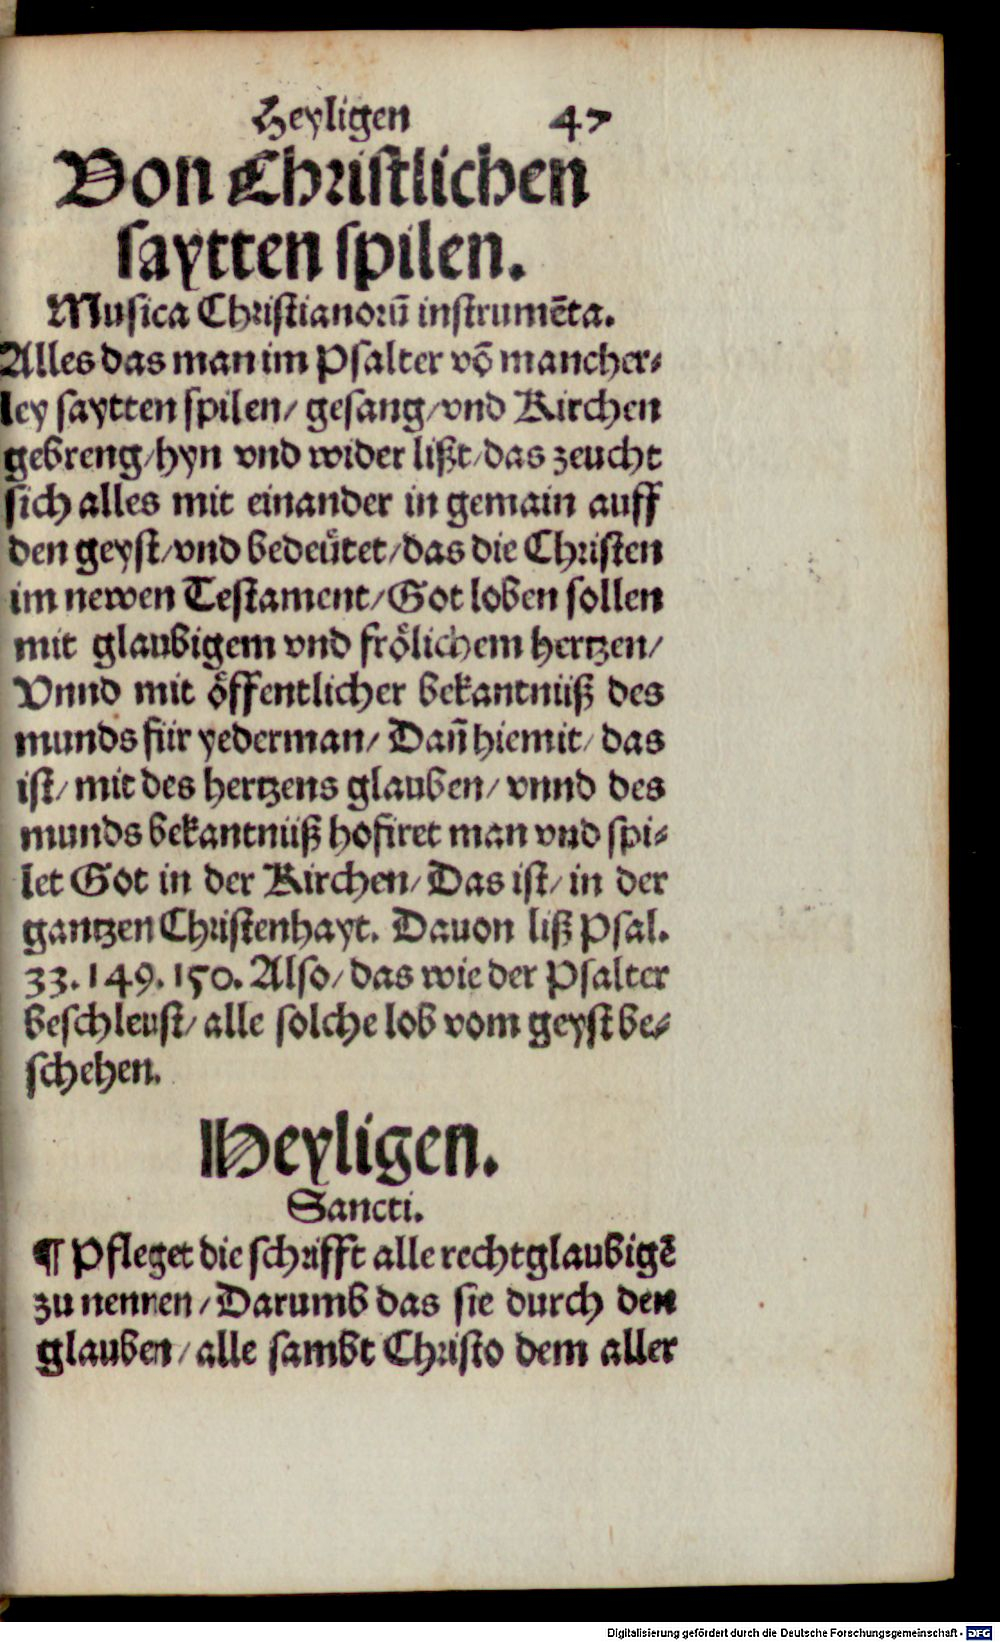 Heyligen 47
Von Christlichen
saytten spilen.
Musica Christianorū instrumēta.
Alles das man im Psalter võ mancher⸗
ley saytten spilen/ gesang/ vnd Kirchen
gebreng/ hyn vnd wider lißt/ das zeucht
sich alles mit einander in gemain auff
den geyst/ vnd bedeütet/ das die Christen
im newen Testament/ Got loben sollen
mit glaubigem vnd frölichem hertzen/
Vnnd mit öffentlicher bekantnüß des
munds für yederman/ Dañ hiemit/ das
ist/ mit des hertzens glauben/ vnnd des
munds bekantnüß hofiret man vnd spi⸗
let Got in der Kirchen/ Das ist/ in der
gantzen Christenhayt. Dauon liß Psal.
33. 149. 150. Also/ das wie der Psalter
beschleust/ alle solche lob vom geyst be⸗
schehen.
Heyligen.
Sancti.
¶ Pfleget die schrifft alle rechtglaubigē
zu nennen/ Darumb das sie durch den
glauben/ alle sambt Christo dem aller
Digitalisierung gefördert durch die Deutsche Forschungsgemeinschaft - DFG